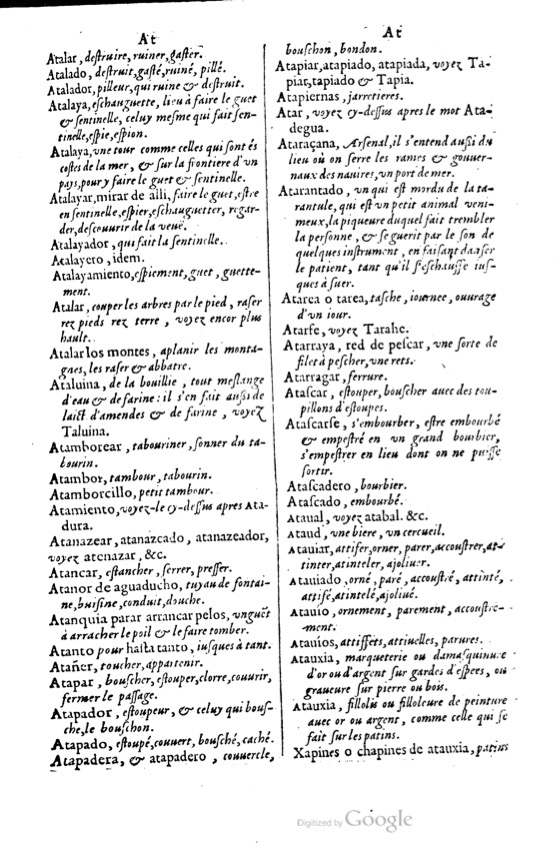 At
Atalar, destruire, ruiner, gaster.
Atalado, destruit, gasté, ruiné, pillé.
Atalador, pilleur, qui ruine & destruit.
Atalaya, eschauguette, lieu à faire le guet
& sentinelle, celuy mesme qui fait sen-
tinelle, espie, espion.
Atalaya, vne tour comme celles qui sont és
costes de la mer, & sur la frontiere d'vn
pays, pour y faire le guet & sentinelle.
Atalayar, mirar de alli, faire le guet, estre
en sentinelle, espier, eschauguetter, regar-
der, descouurir de la veuë.
Atalayador, qui fait la sentinelle.
Atalayero, idem.
Atalayamiento, espiement, guet, guette-
ment.
Atalar, couper les arbres par le pied, raser
rez pieds rez terre, voyez encor plus
hault.
Atalar los montes, aplanir les monta-
gnes, les raser & abbatre.
Ataluina, de la bouillie, tout meslange
d'eau & de farine: il s'en fait aussi de
laict d'amendes & de farine, voyez
Taluina.
Atamborear, tabouriner, sonner du ta-
bourin.
Atambor, tambour, tabourin.
Atamborcillo, petit tambour.
Atamiento, voyez-le cy-dessus apres Ata-
dura.
Atanazear, atanazcado, atanazeador,
voyez atenazar, &c.
Atancar, estancher, serrer, presser.
Atanor de aguaducho, tuyau de fontai-
ne, buisine, conduit, douche.
Atanquia parar arrancar pelos, vnguēt
à arracher le poil & le faire tomber.
Atanto pour hasta tanto, iusques à tant.
Atañer, toucher, appartenir.
Atapar, bouscher, estouper, clorre, couurir,
fermer le passage.
Atapador, estoupeur, & celuy qui bous-
che, le bouschon.
Atapado, estoupé, couuert, bousché, caché.
Atapadera, & atapadero, couuercle,
At
bouschon, bondon.
Atapiar, atapiado, atapiada, voyez Ta-
piar, tapiado & Tapia.
Atapiernas, jarretieres.
Atar, voyez cy-dessus apres le mot Ata-
degua.
Ataraçana, Arsenal, il s'entend aussi du
lieu où on serre les rames & gouuer-
naux des nauires, vn port de mer.
Atarantado, vn qui est mordu de la ta-
rantule, qui est vn petit animal veni-
meux, la piqueure duquel fait trembler
la personne, & se guerit par le son de
quelques instrument, en faisant danser
le patient, tant qu'il s'eschauffe ius-
ques à suer.
Atarea o tarea, tasche, iournee, ouurage
d'vn iour.
Atarfe, voyez Tarahe.
Atarraya, red de pescar, vne sorte de
filet à pescher, vne rets.
Atarragar, ferrure.
Atascar, estouper, bouscher auec des tou-
pillons d'estoupes.
Atascarse, s'embourber, estre embourbé
& empestré en vn grand bourbier,
s'empestrer en lieu dont on ne puisse
sortir.
Atascadero, bourbier.
Atascado, embourbé.
Ataual, voyez atabal. &c.
Ataud, vne biere, vn cercueil.
Atauiar, attifer, orner, parer, accoustrer, at-
tinter, atinteler, ajoliuer.
Atauiado, orné, paré, accoustré, attinté,
attifé, atintelé, ajoliué.
Atauío, ornement, parement, accoustre-
ment.
Atauíos, attiffets, attiuelles, parures.
Atauxia, marqueterie ou damasquinure
d'or ou d'argent sur gardes d'espees, ou
graueure sur pierre ou bois.
Atauxia, fillolis ou filloleure de peinture
auec or ou argent, comme celle qui se
fait sur les patins.
Xapines o chapines de atauxia, patins
Digitized by Google